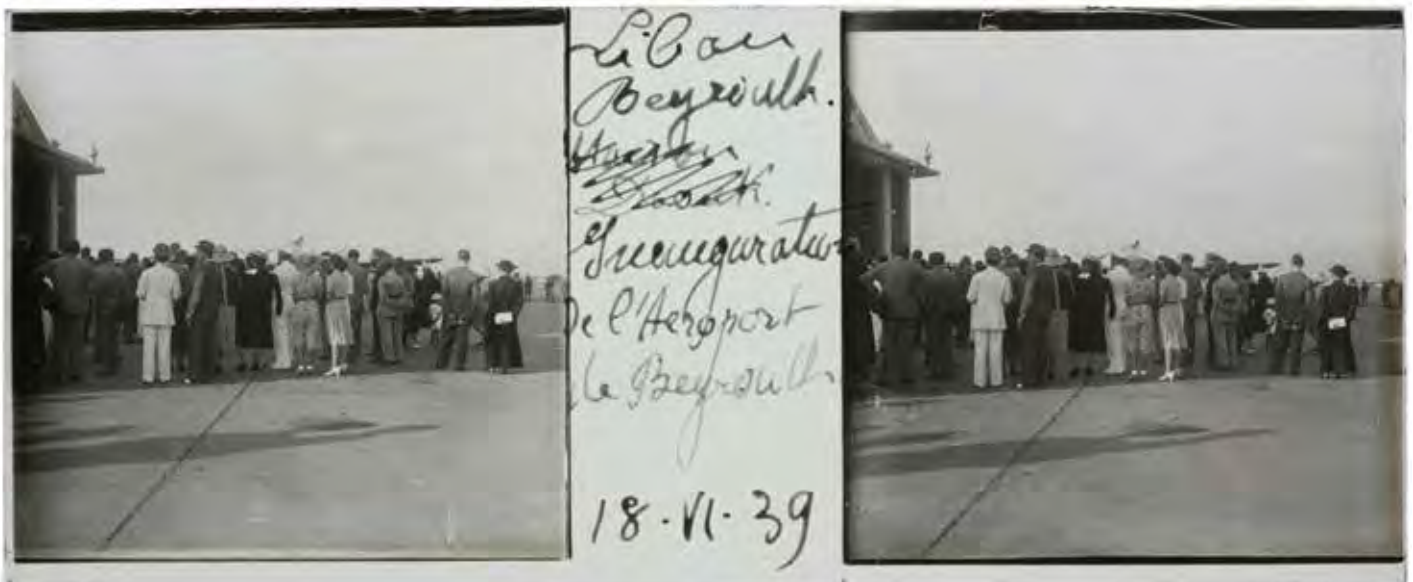 Liban
Beyrouth.
Inauguration
de l'Aeroport
de Beyrouth
18.VI.39